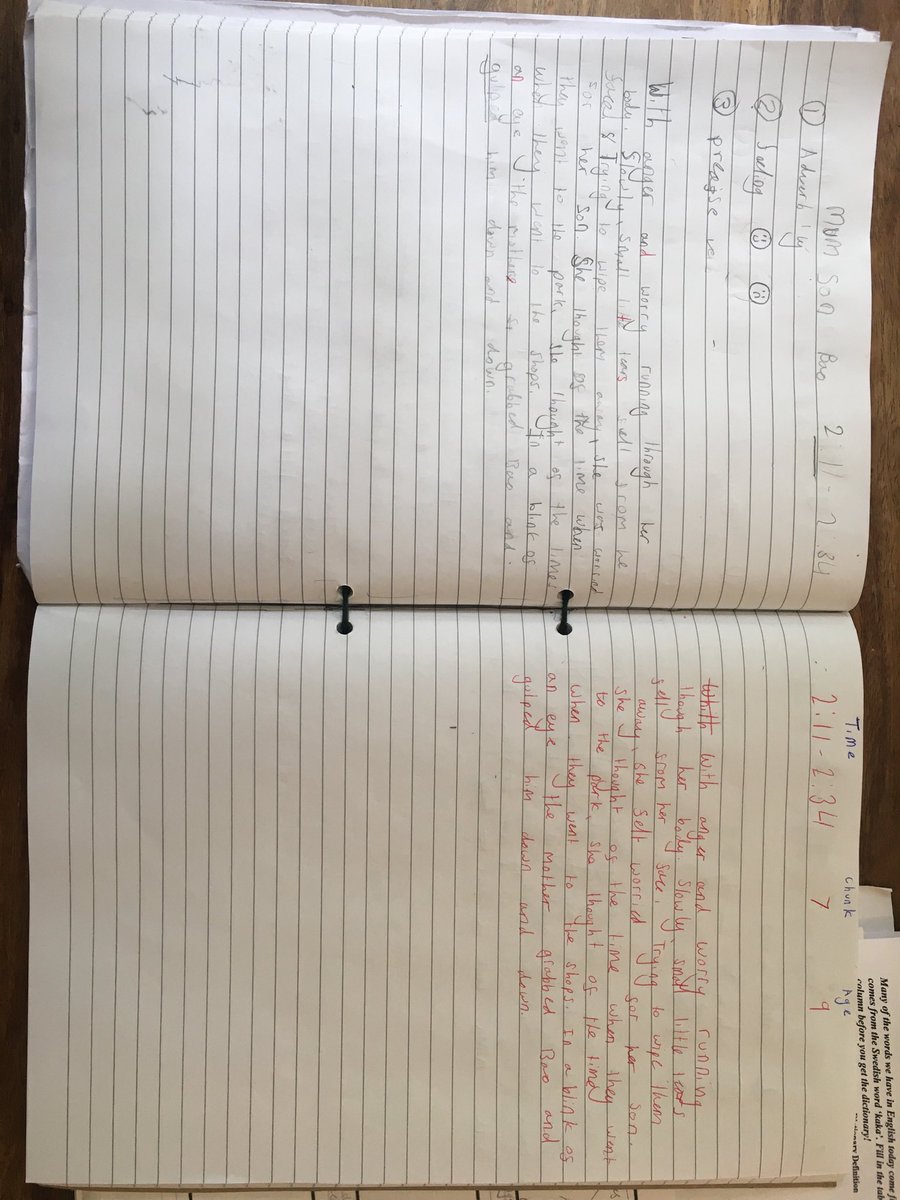 MUM Son Bao 2:11 - 2:34
① Adverb 'ly
② Feeling ☺ ☹
③
With anger and worry running through her
body. Slowly, small litt tears fell from he
face. Trying to wipe them away, she was worried
for her son She thought of the time when
they went to the park, she thought of the time
when they went to the shops. In a blink of
an eye, the mother grabbed Bao and
gulped him down and down.
Time Chunk Age
2:11 - 2:34 7 9
Whith With anger and worry running
though her body. Slowly, small little tears
fell from her face. Trying to wipe them
away, she felt worried for her son.
She thought of the time when they went
to the park, she thought of the time
when they went to the shops. In a blink of
an eye, the mother grabbed Bao and
gulped him down and down.
Many of the words we have in English today come
comes from the Swedish word 'kaka'. Fill in the
column before you get the dictionary!
Definition